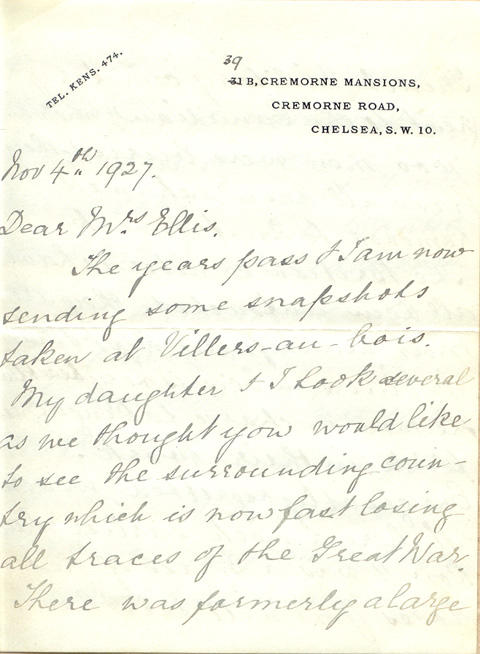 TEL. KENS. 474.
39
31 B, CREMORNE MANSIONS,
CREMORNE ROAD,
CHELSEA, S.W. 10.
Nov 4th 1927.
Dear Mrs Ellis.
The years pass & I am now
sending some snapshots
taken at Villers-au-bois.
My daughter & I took several
as we thought you would like
to see the surrounding coun-
try which is now fast losing
all traces of the Great War.
There was formerly a large